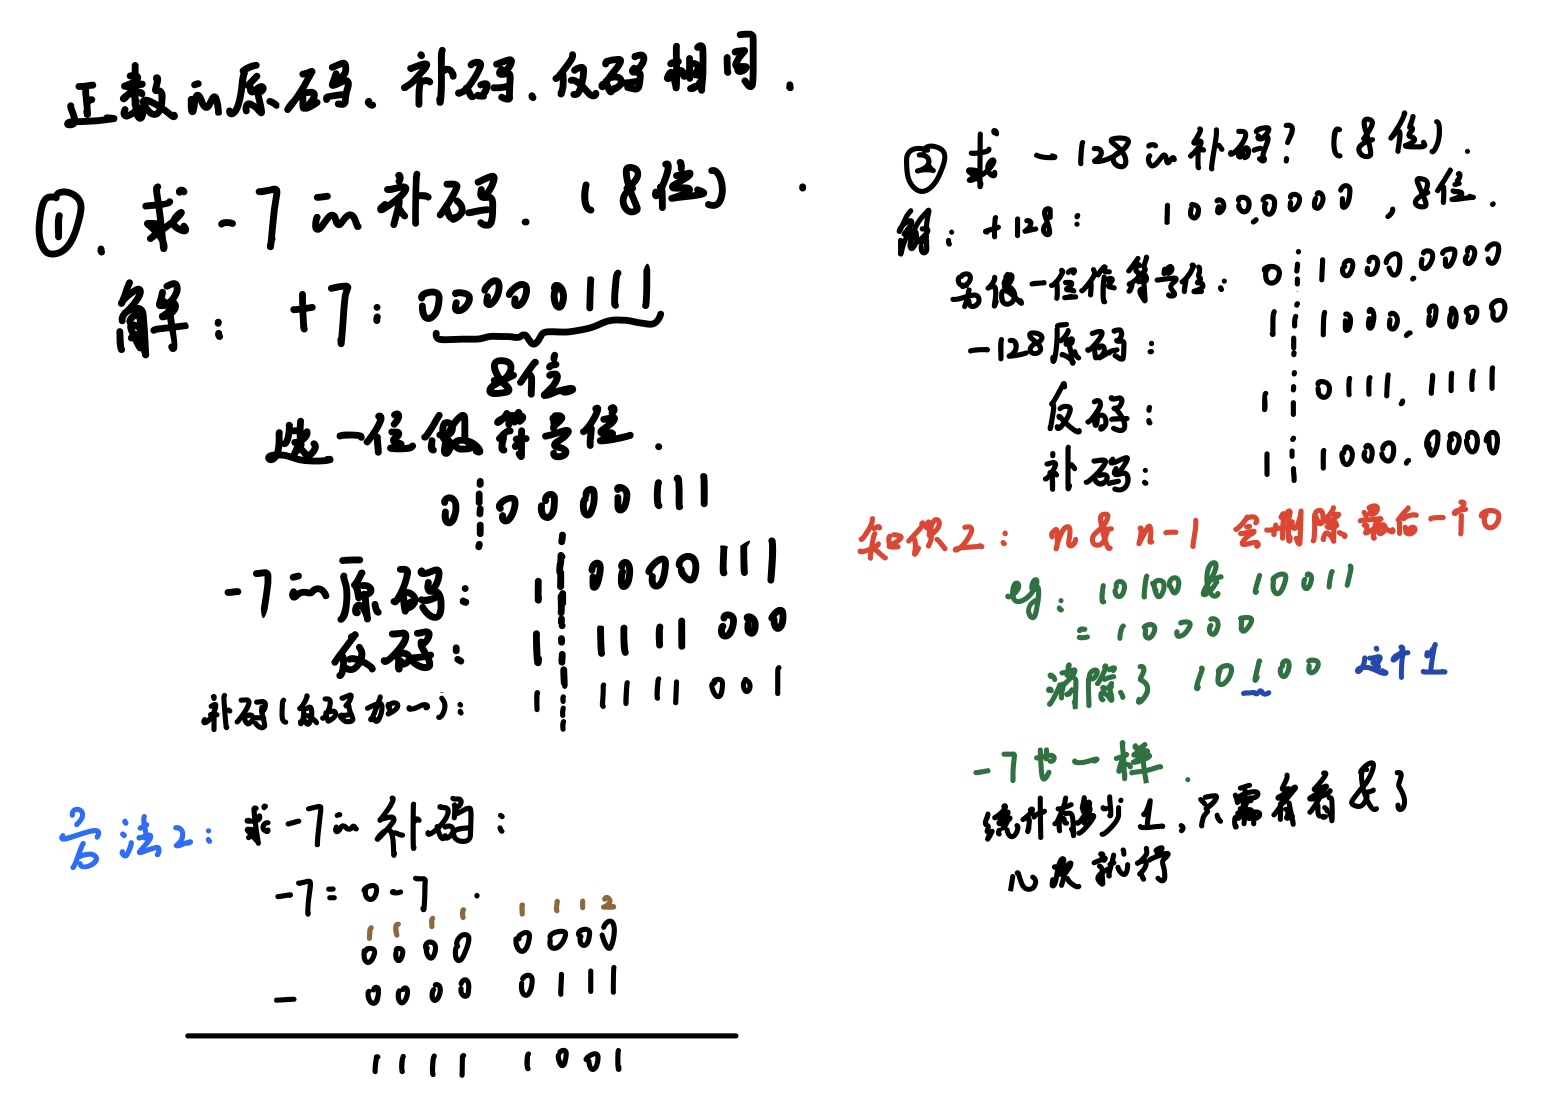 正数的原码、补码、反码相同.
①. 求 -7 的补码. (8位).
解: +7: 00000111
8位
选一位做符号位.
0 0000111
-7的原码: 1 0000111
反码: 1 1111000
补码(反码加一): 1 1111001
方法2: 求-7的补码:
-7 = 0-7.
1 1 1 1 1 1 1 2
0000 0000
- 0000 0111
1111 1001
② 求 -128的补码? (8位).
解: +128: 1000.0000, 8位.
另做一位作符号位: 0 1000.0000
-128原码: 1 1000.0000
反码: 1 0111.1111
补码: 1 1000.0000
知识2: n & n-1 会删除最后一个0
eg: 10100 & 10011
= 10000
消除了 10100 这个1
-7也一样.
统计有多少1,只需看看&了
几次就行